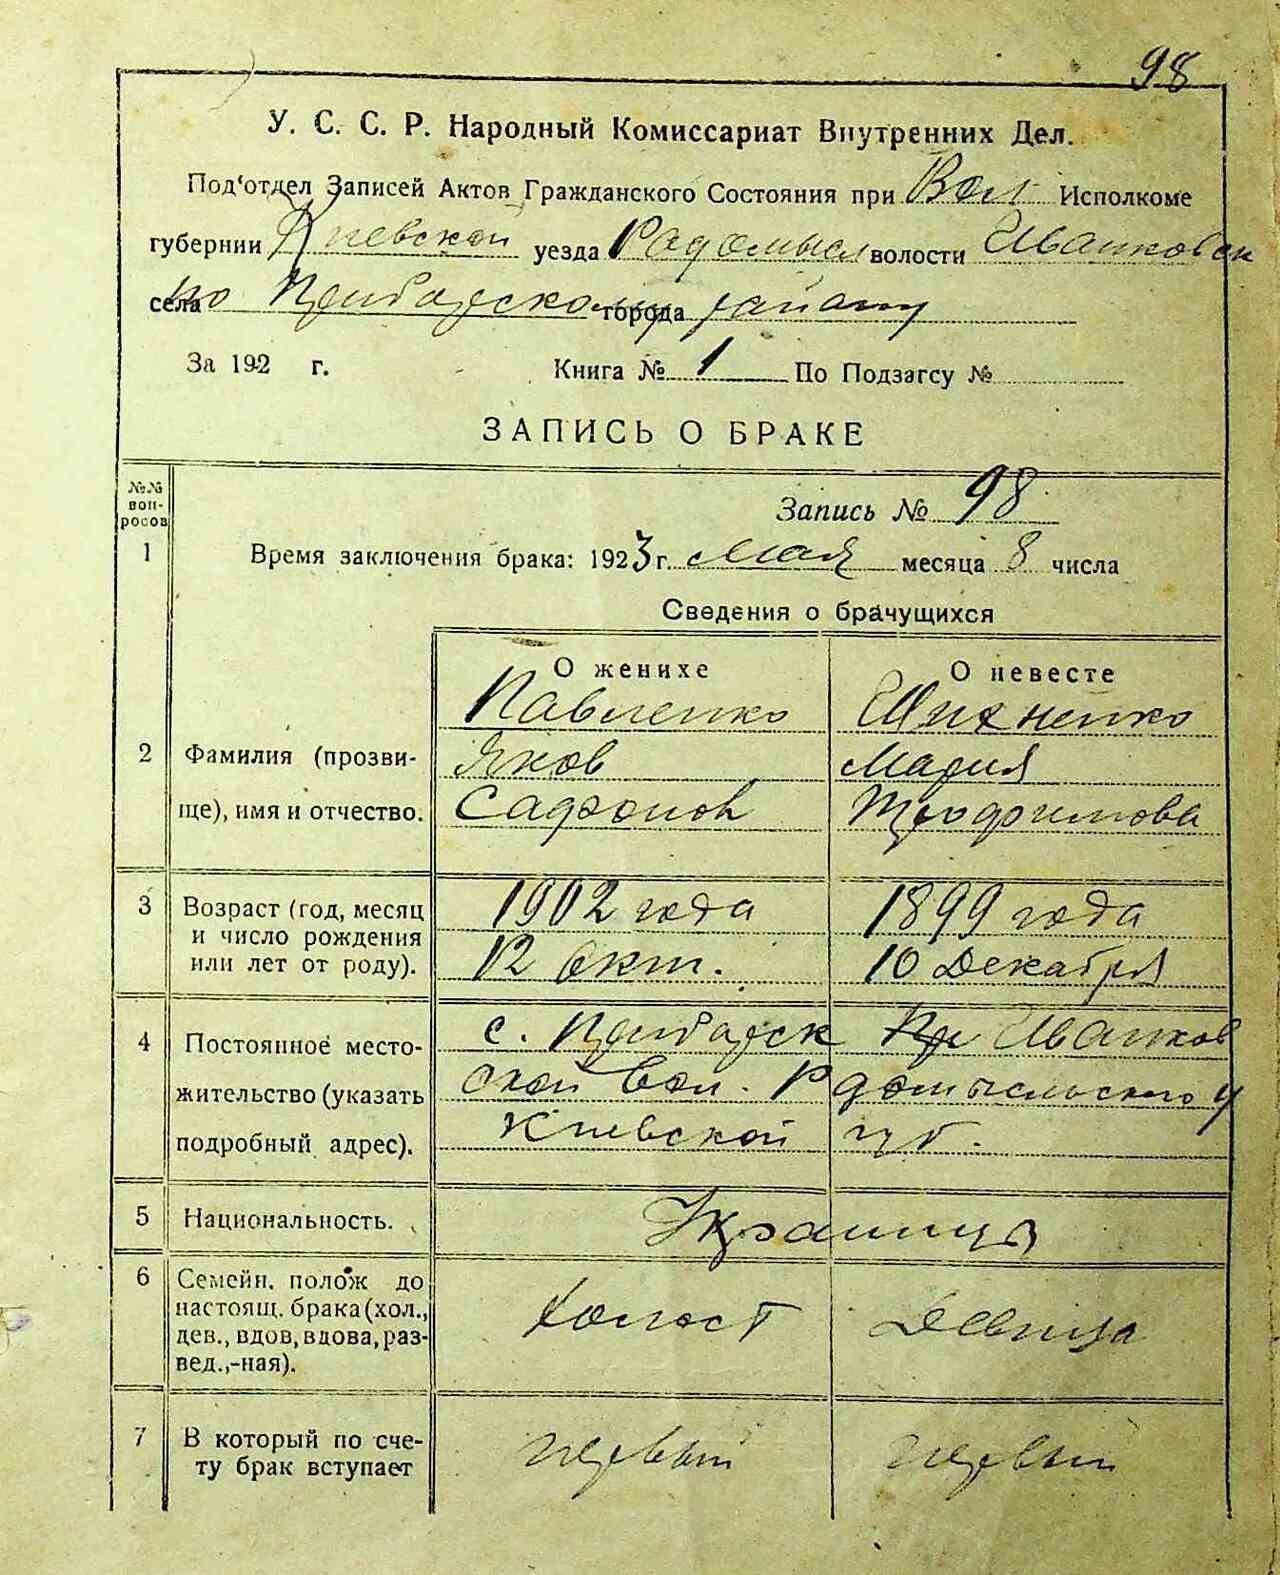 98
У. С. С. Р. Народный Комиссариат Внутренних Дел.
Под'отдел Записей Актов Гражданского Состояния при Вол Исполкоме
губернии Киевской уезда Радомысл волости Иванковск
села по Прибарскому города району
За 192 г. Книга № 1 По Подзагсу №
ЗАПИСЬ О БРАКЕ
№№ вопросов
Запись № 98
1 Время заключения брака: 1923 г. мая месяца 8 числа
Сведения о брачущихся
О женихе О невесте
Павленко Шихненко
2 Фамилия (прозви- Яков Мария
ще), имя и отчество. Сафонов Трофимова
3 Возраст (год, месяц 1902 года 1899 года
и число рождения
или лет от роду). 12 окт. 10 Декабря
4 Постоянное место- с. Прибарск Иванков
жительство (указать ской вол. Радомысльского у
подробный адрес). Киевской губ.
5 Национальность. Украинцы
6 Семейн. полож до
настоящ. брака (хол., холост Девица
дев., вдов, вдова, раз-
вед.,-ная).
7 В который по сче- первый первый
ту брак вступает